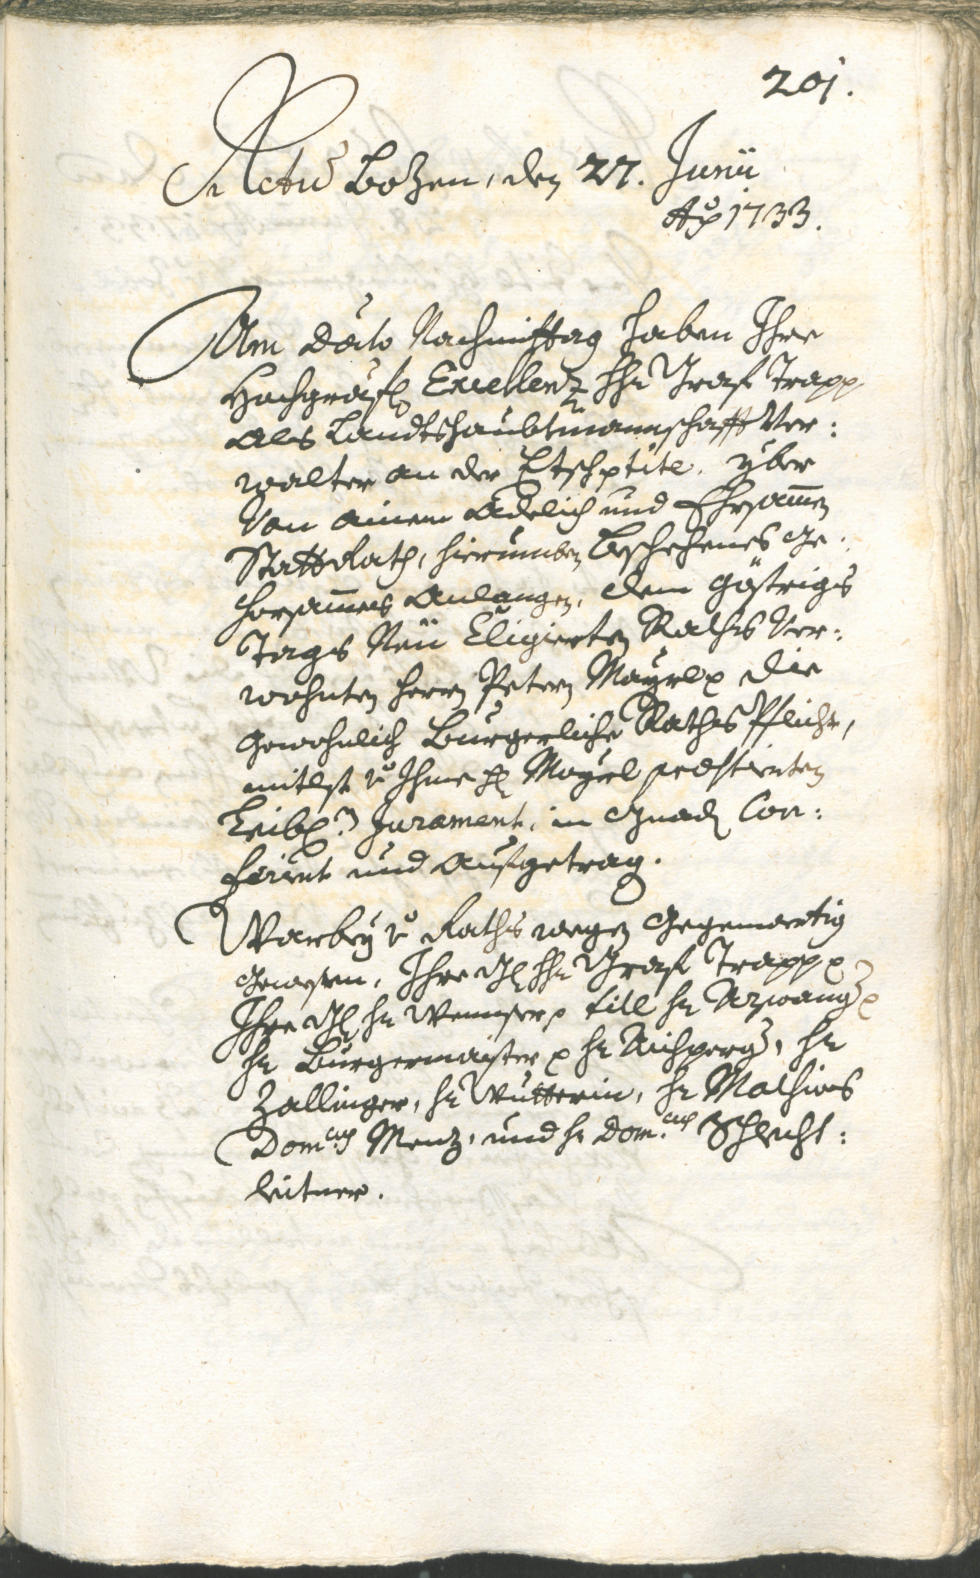 201.
Actum Bozen, den 27. Junii
Ao 1733.
Am dato Nachmittag haben Ihre
Hochgräfl Excellenz Hr Graf Trapp
als Landtshaubtmannschafft Ver:
walter an der Etsch p title. yber
von ainem Adelich und Ehrsamen
Statt Rath, hierumben beschehenes ge:
horsames Anlangen, dem göstrigs
tags Neü Eligierten Raths Ver:
wohnten herrn Petern Mayrl p die
gewohnlich Burgerliche Raths Pflicht,
mitlst v Ihme H Mayrl præstierten
Leibl Jurament, in Gnaden Con:
feriert und Aufgetragen.
Warbey v Raths wegen Gegenwertig
gewesen, Ihre Gl Hr Graf Trapp p
Ihre Gl Hr Wenser p till Hr Azwang p
Hr Burgermaister p Hr Aichperg, Hr
Zallinger, Hr Wutterin, Hr Mathias
Domcus Menz, und Hr Dom.cus Schlecht:
leitner.